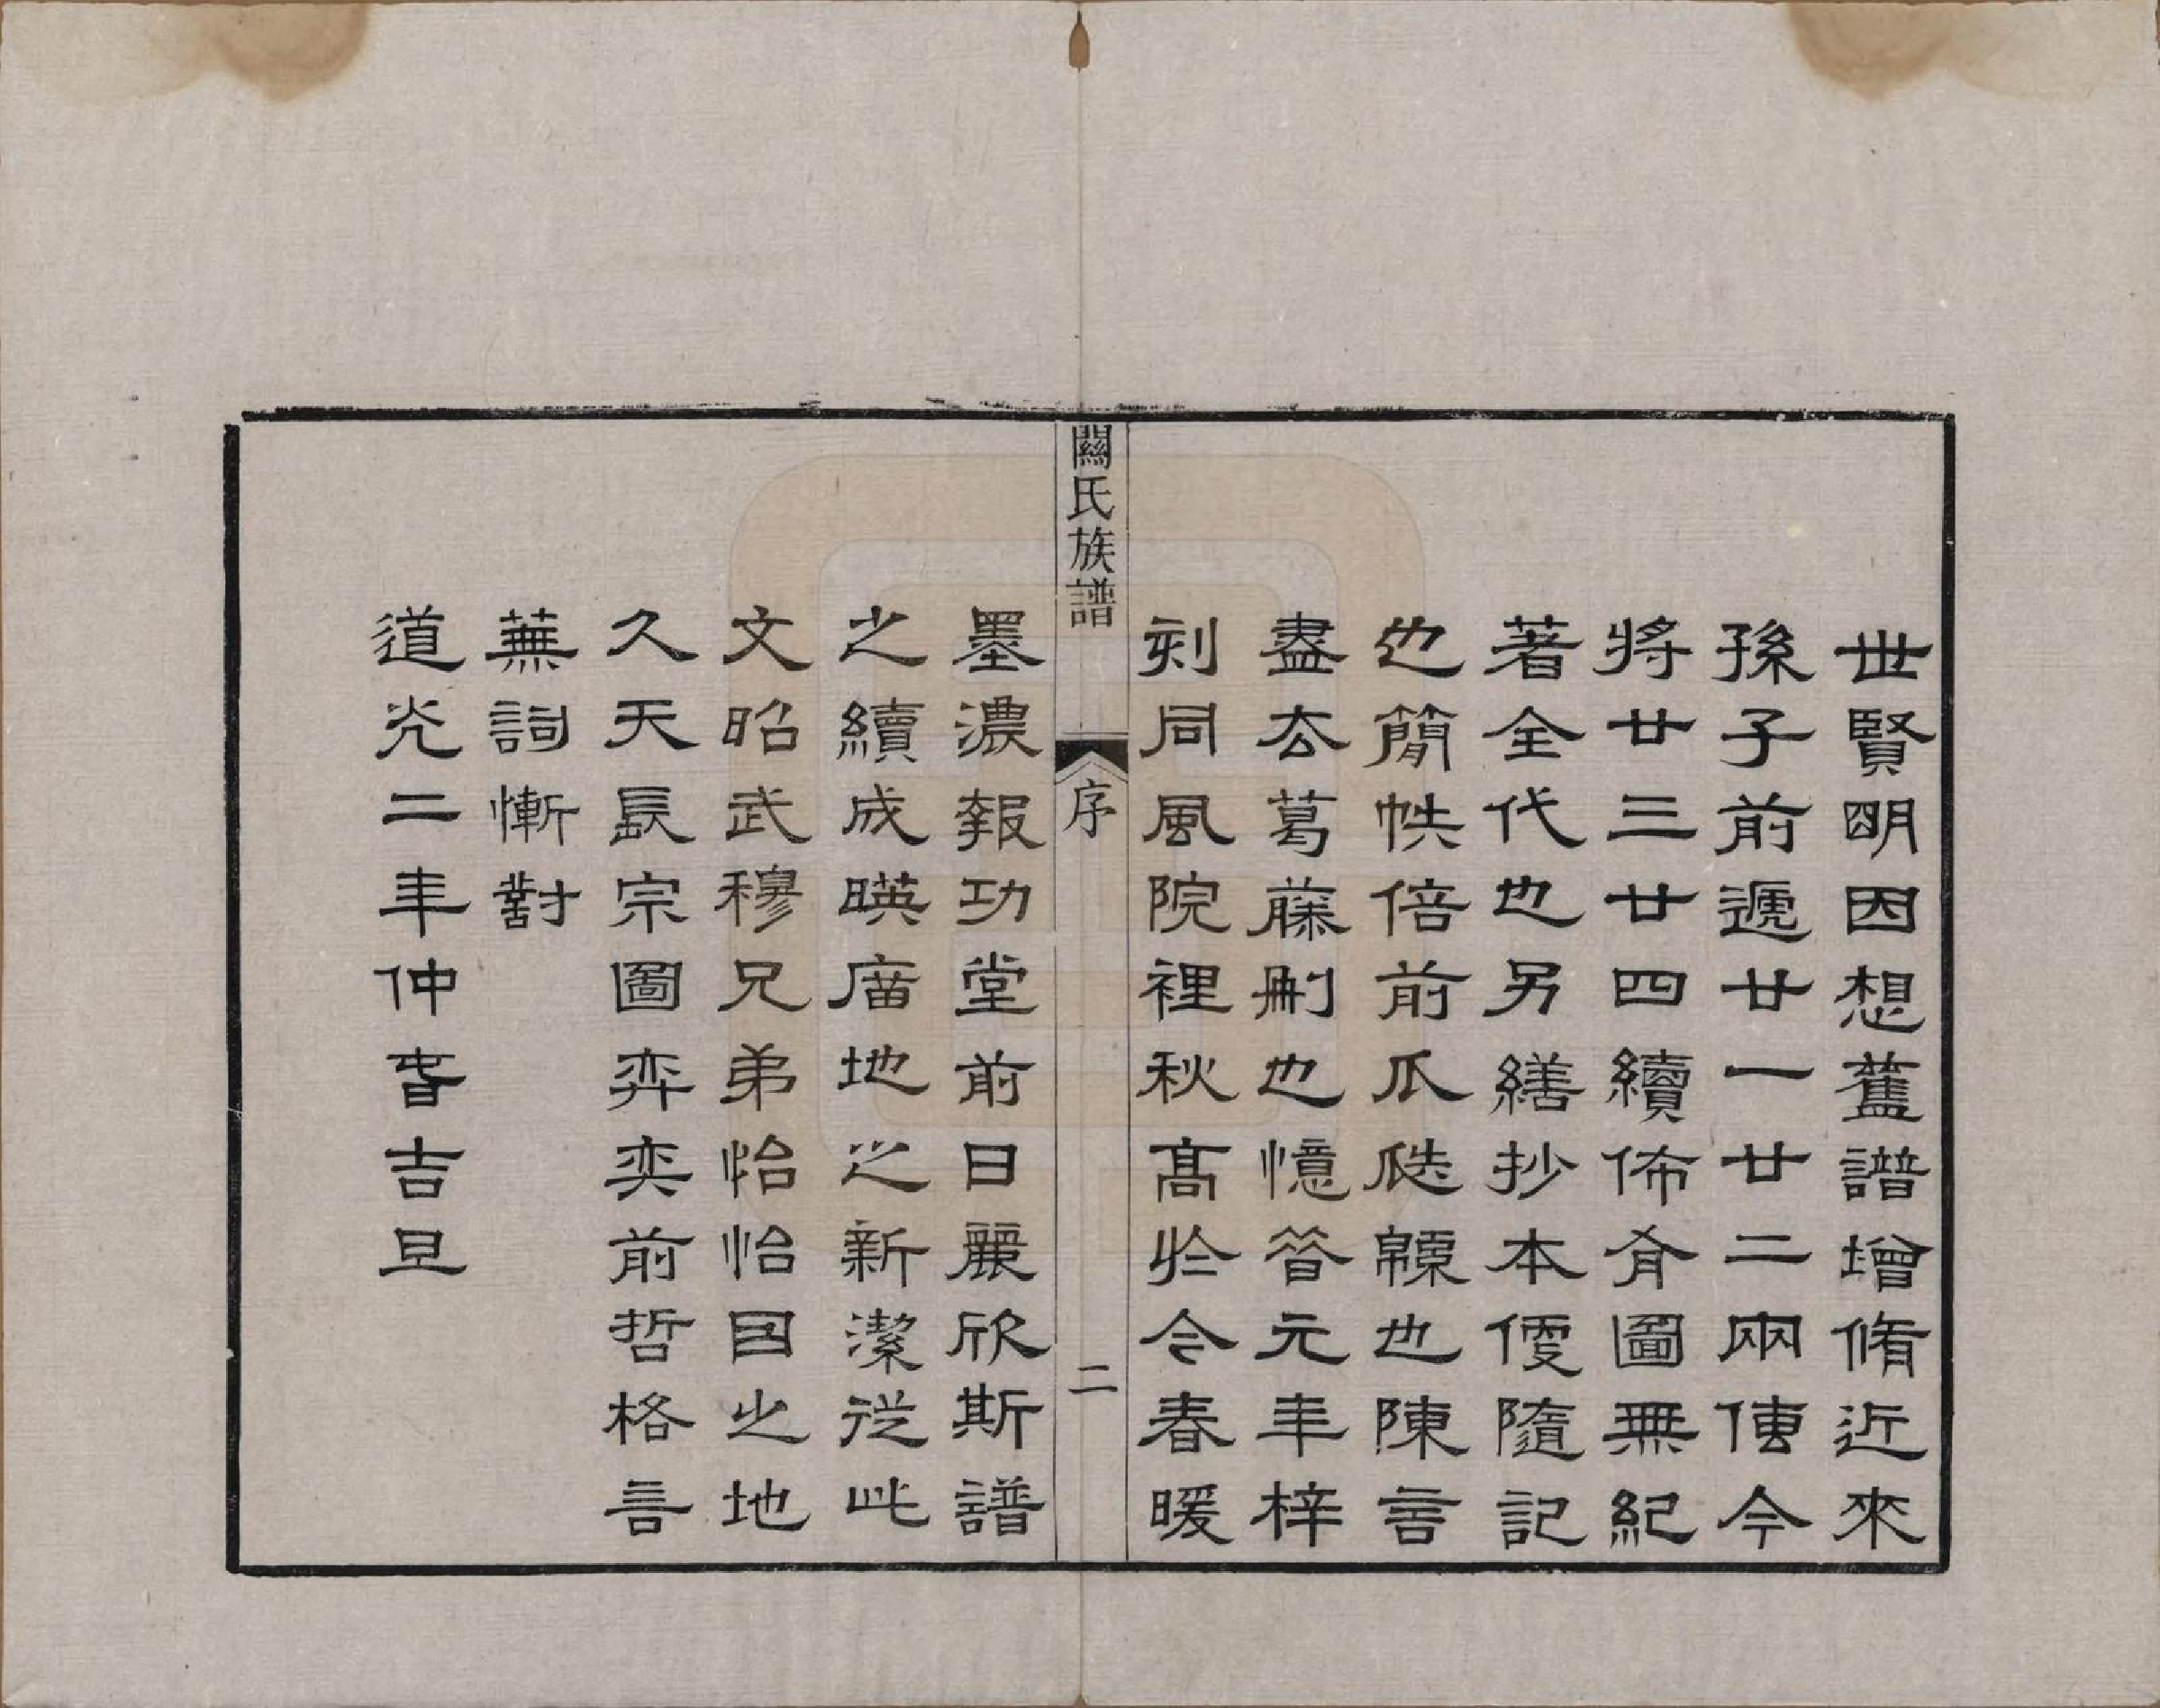 世賢明因想舊譜增脩近來
孫子前遞廿一廿二兩傳今
將廿三廿四續佈有圖無紀
著全代也另繕抄本便隨記
也簡帙倍前瓜瓞緜也陳言
盡去葛藤刪也憶昝元年梓
刻同風院裡秋高於今春暖
關氏族譜
序
二
墨濃報功堂前日麗欣斯譜
之續成暎庿地之新潔從此
文昭武穆兄弟怡怡國之地
久天長宗圖弈奕前哲格言
蕪詞慚對
道光二年仲春吉旦